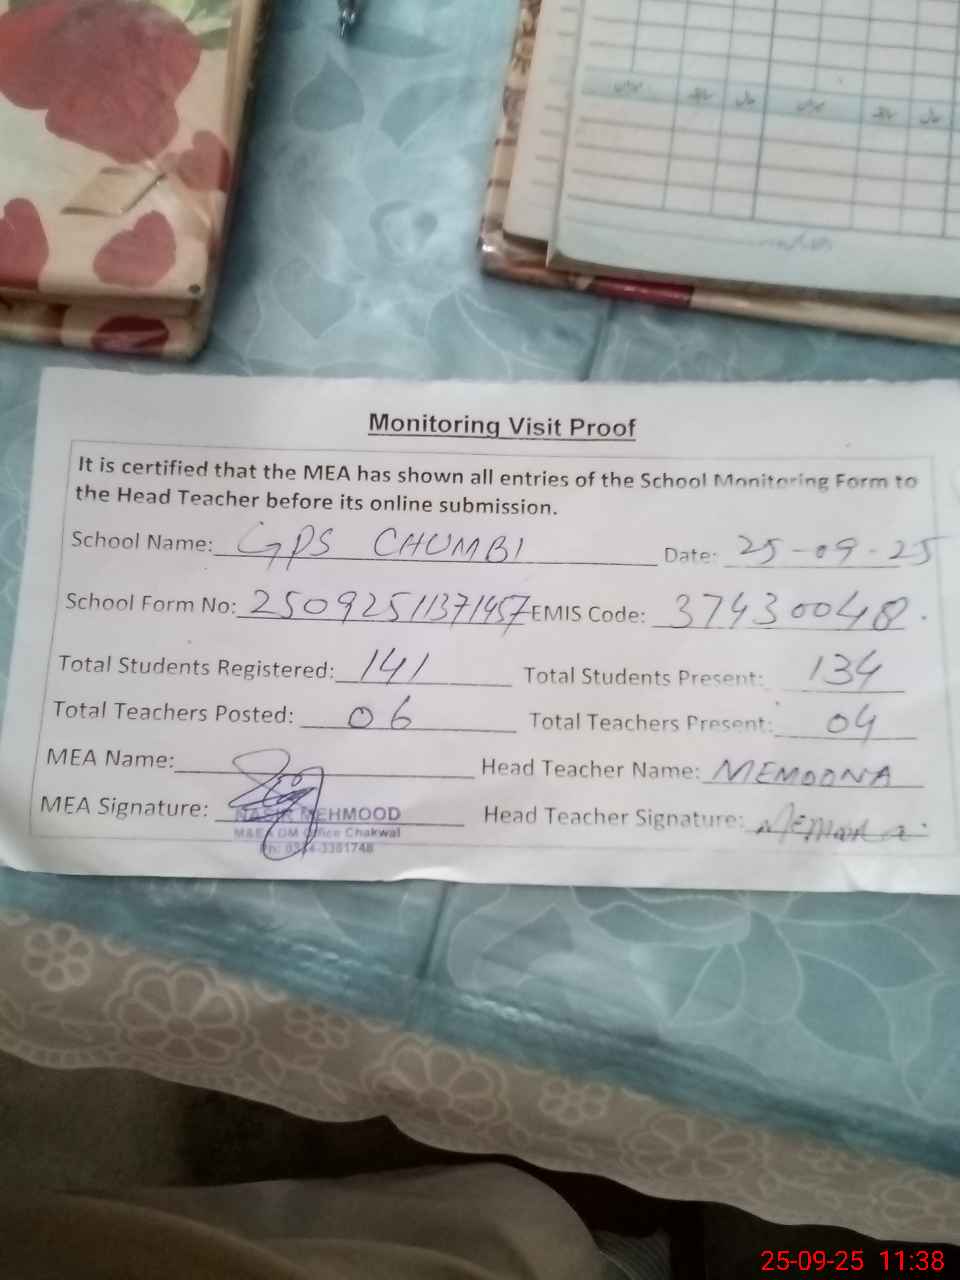 Monitoring Visit Proof
It is certified that the MEA has shown all entries of the School Monitoring Form to
the Head Teacher before its online submission.
School Name: GPS CHUMBI Date: 25-09-25
School Form No: 25092511371457 EMIS Code: 37430048
Total Students Registered: 141 Total Students Present: 134
Total Teachers Posted: 06 Total Teachers Present: 04
MEA Name: Head Teacher Name: MEMOONA
MEA Signature: Head Teacher Signature: Memoona
NASIR MEHMOOD
M&EA DM Office Chakwal
25-09-25 11:38